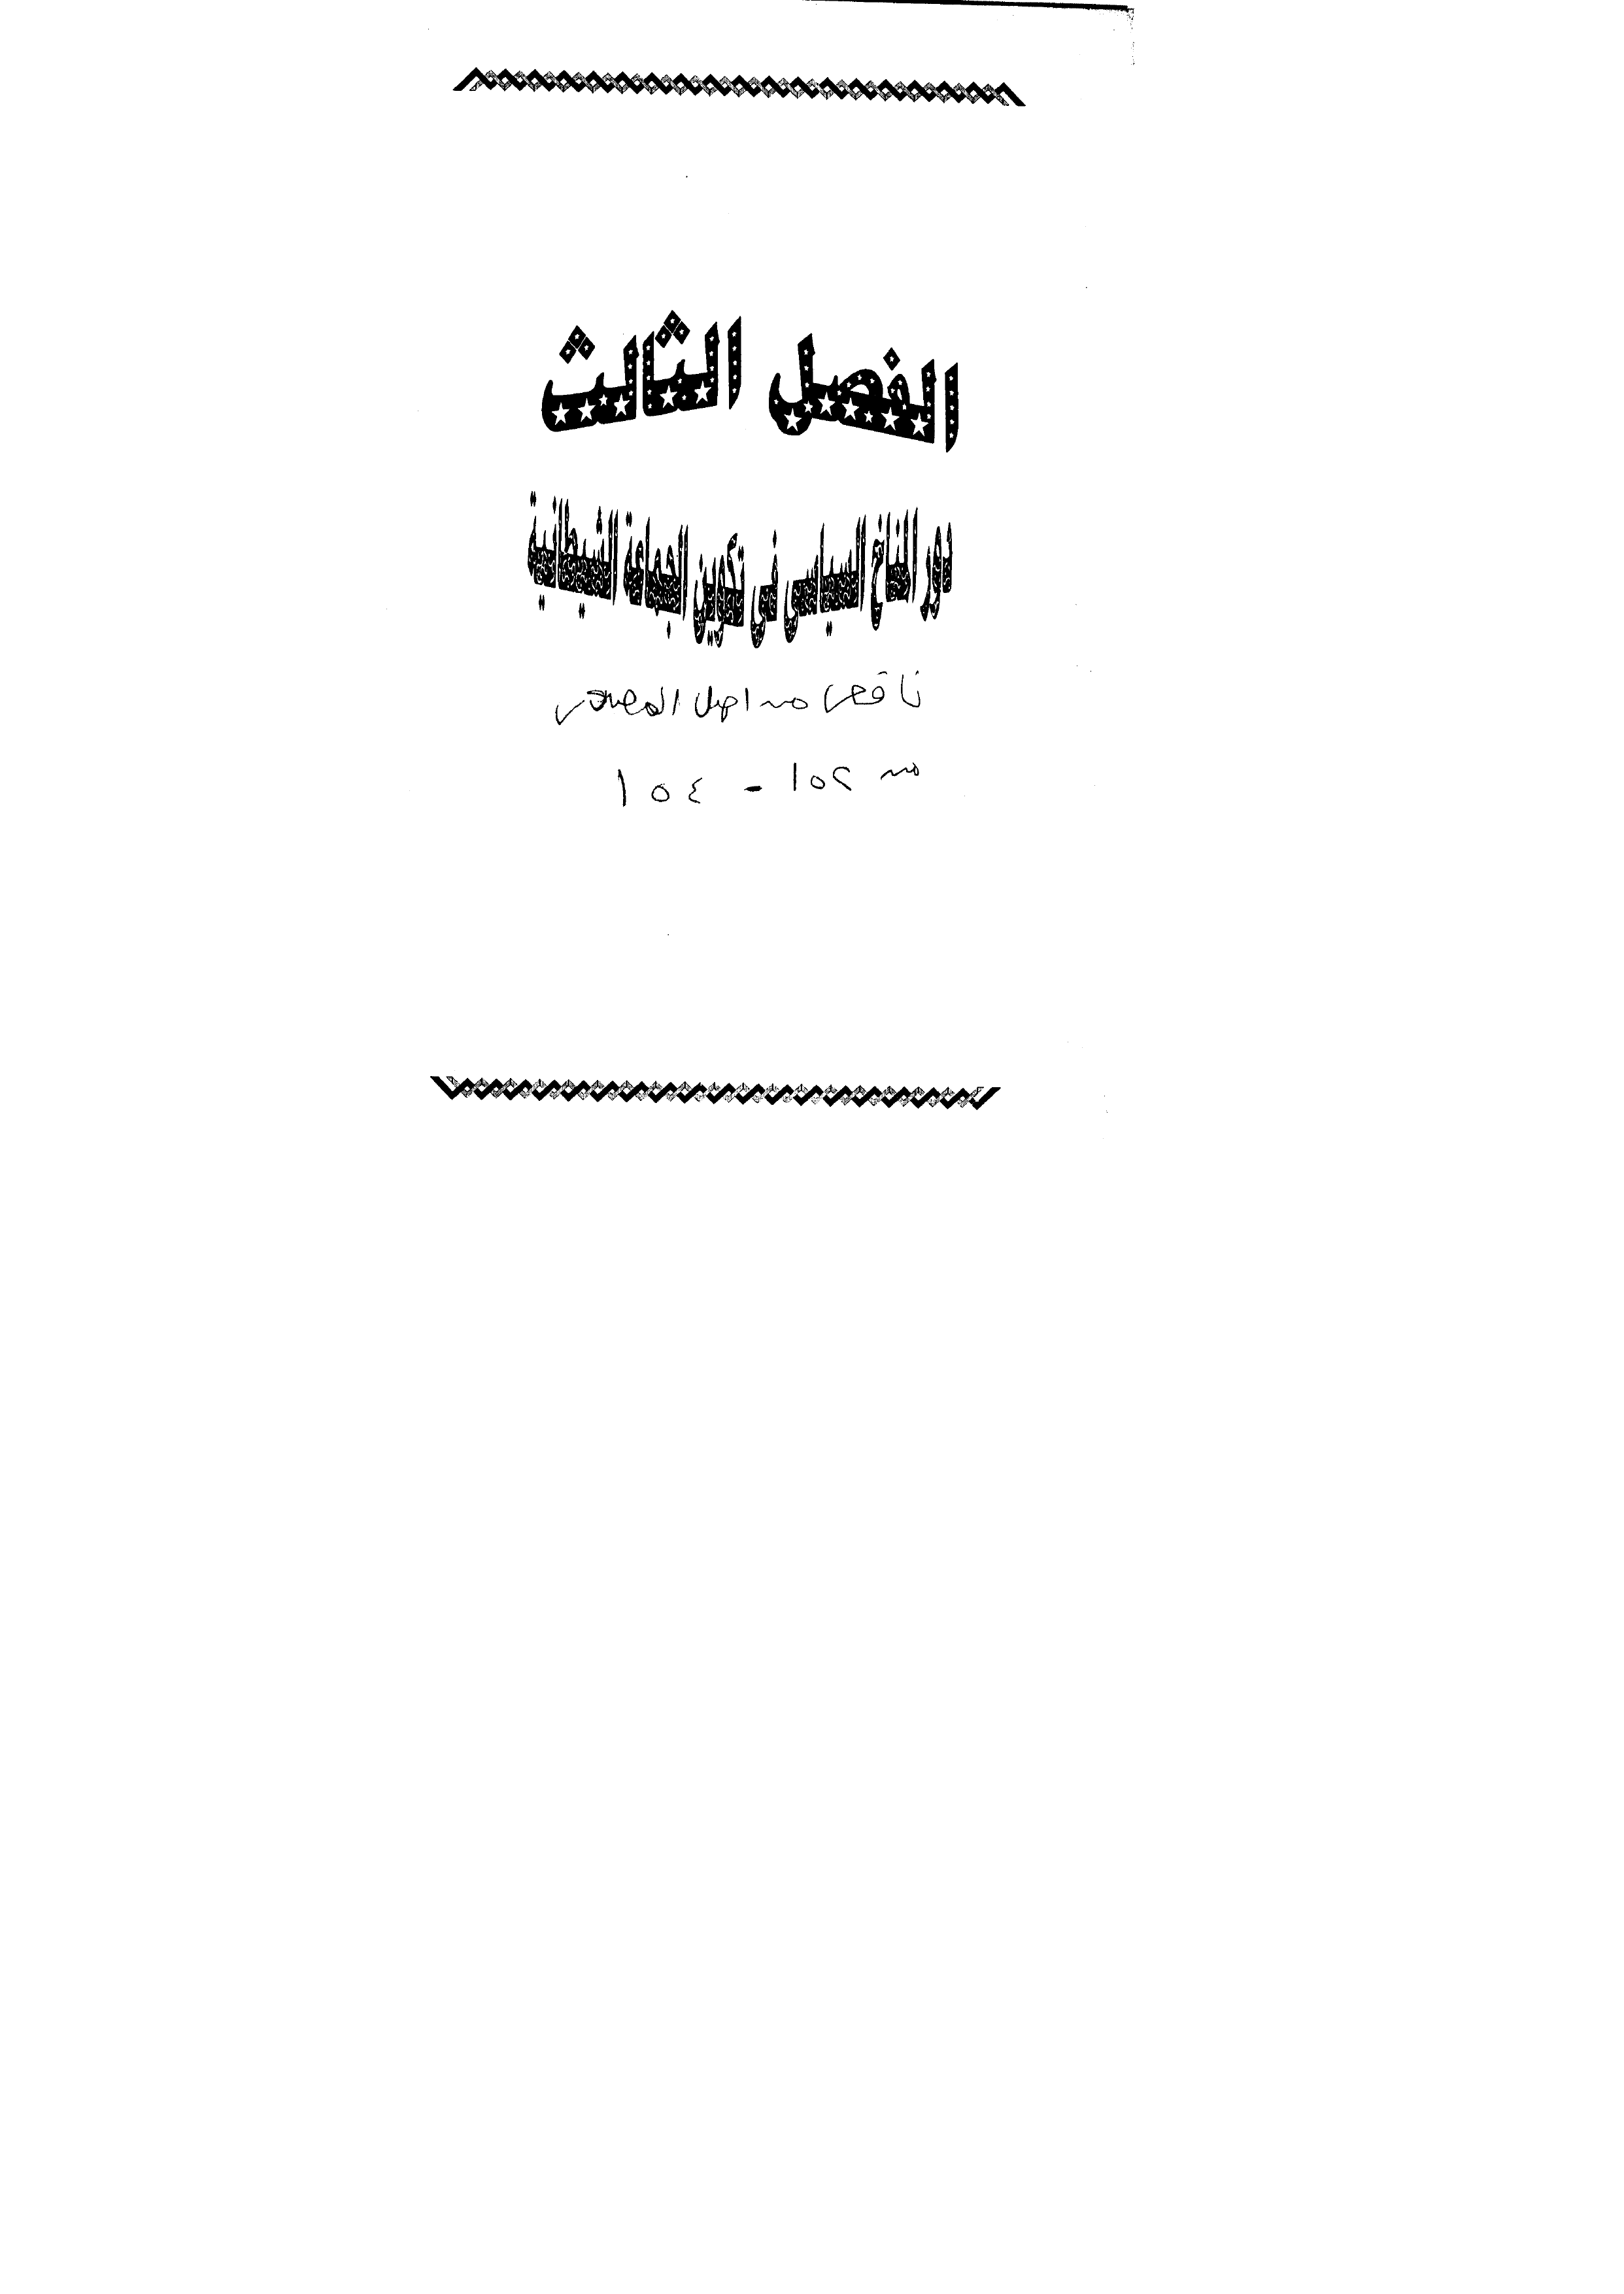 الفصل الثالث
دور المناخ السياسى فى تكوين الجماعة الشيطانية
ناقص من اصل المصدر
من ١٥٢ - ١٥٤